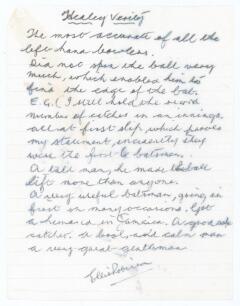 Hedley Verity
The most accurate of all the
left hand bowlers.
Did not spin the ball very
much, which enabled him to
find the edge of the bat.
E.G. (I still hold the record
number of catches in an innings,
all at first slip, which proves
my statement, incidently they
were the first 6 batsmen.
A tall man, he made the ball
lift more than anyone.
A very useful batsman, going in
first on many occasions. Got
a hundred in Jamaica. A good safe
catcher. A kool, and calm man
a very great gentleman
Ellis Robinson